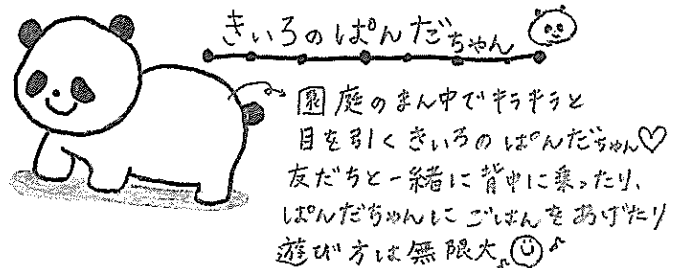 きいろのぱんだちゃん
園庭のまん中でキラキラと
目を引くきいろのぱんだちゃん♡
友だちと一緒に背中に乗ったり、
ぱんだちゃんにごはんをあげたり
遊び方は無限大♪☺♪